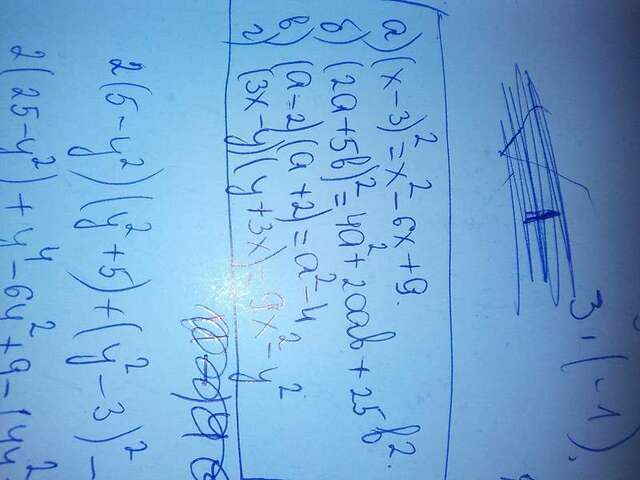 3·(-1).
а) (x-3)² = x² - 6x + 9.
б) (2a+5b)² = 4a² + 20ab + 25b².
в) (a-2)(a+2) = a² - 4
г) (3x-y)(y+3x) = 9x² - y²
2(5-y²)(y²+5) + (y²-3)² -
2(25-y⁴) + y⁴ - 6y² + 9 - (4y²